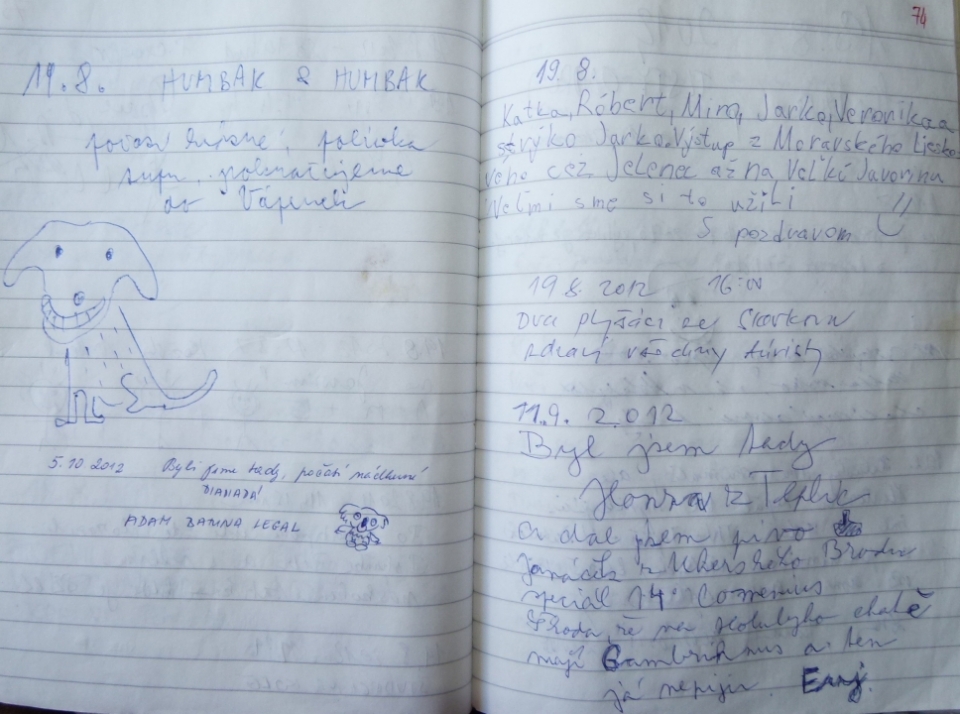 19.8. HUMBAK & HUMBAK
počasí krásné, polívka
supr, pokračujeme
do Vápenek
5.10 2012 Byli jsme tady, počasí nádherné
ADAM LEGAL
74
19.8.
Katka, Róbert, Miro, Jarka, Veronika a
strýko Jarko. Výstup z Moravského Liesko-
vého cez Jelenec až na Veľkú Javorinu
Veľmi sme si to užili
S pozdravom
19 8. 2012 16:00
Dva plyšáci ze Slavkova
zdraví všechny turisty
11.9. 2012
Byl jsem tady
Honza z Teplic
a dal jsem pivo
Janáček z Uherského Brodu
speciál 14° Comenius
Škoda, že na Holubyho chatě
mají Gambrinus a ten
já nepiju.